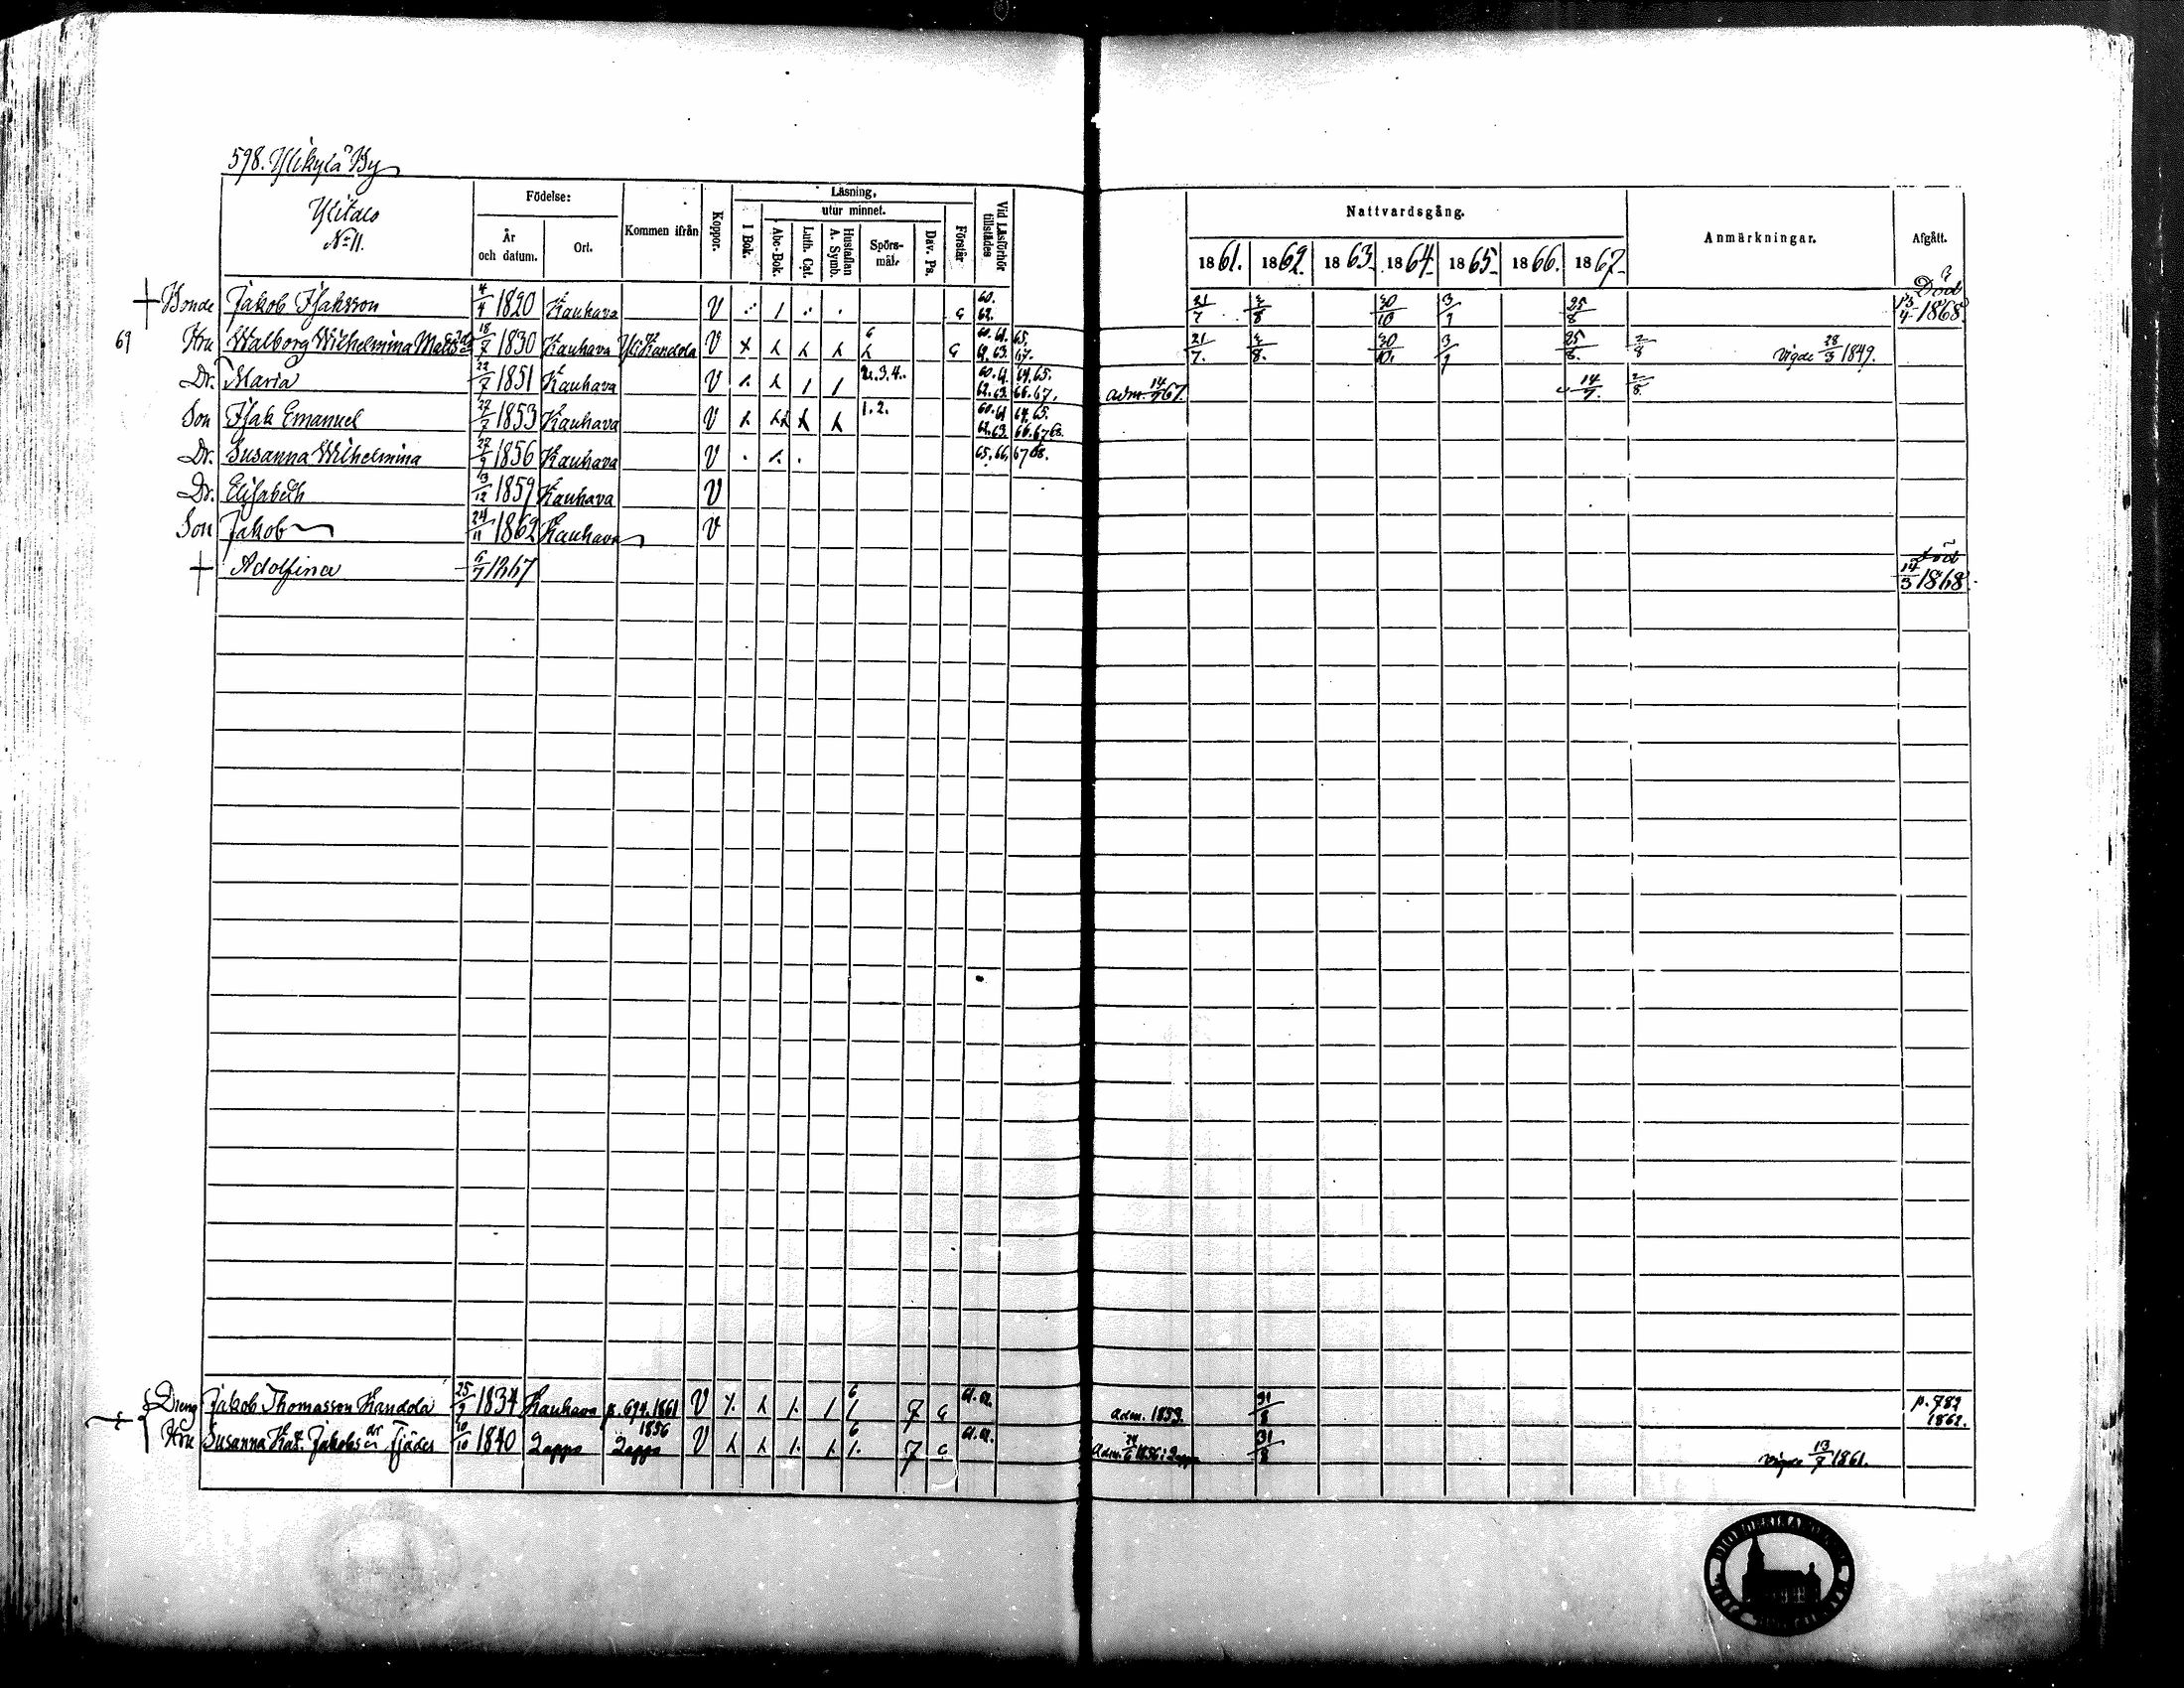 598. Ylikylä By
Ylitalo
No 11.
Födelse:
År
och datum.
Ort.
Kommen ifrån
Koppor.
Läsning,
utur minnet.
I Bok.
Abc-Bok.
Luth. Cat.
Hustaflan
A. Symb.
Spörs-
mål.
Dav. Ps.
Förstår
Vid Läsförhör
tillstädes
Nattvardsgång.
1861. 1862. 1863. 1864. 1865. 1866. 1867.
Anmärkningar.
Afgått.
Bonde Jakob Isaksson 4/4 1820 Kauhava V 60. 62. 21/7 3/8 30/10 3/9 25/8 Död 1868.
69 Hru Walborg Wilhelmina 18/8 1830 Kauhava Yli Kandola V 6 21/7. 3/8. 30/10. 3/9 25/8. 2/8 vigde 28/3 1849.
Dr. Maria 22/7 1851 Kauhava V 2.3.4. 60.61. 64.65. 62.63. 66.67. adm. 14/7 67. 14/7. 2/8.
Son Isak Emanuel 27/7 1853 Kauhava V 1.2. 60.61 64.65. 62.63. 66.67 68.
Dr. Susanna Wilhelmina 27/9 1856 Kauhava V 65.66. 67 68.
Dr. Elisabeth 13/12 1859 Kauhava V
Son Jakob 24/11 1862 Kauhava V
Adolfina 6/7 1867 död 14/3 1868.
Dreng Jakob Thomasson Kandola 25/9 1834 Kauhava p. 694. 1861 V 6 7 61.62. adm. 1853. 31/8 p. 789 1862.
Hru Susanna Kat. Jakobsdr Fjäder 10/10 1840 Lappo Lappo 1856 V 6 7 61.62. Adm. 1856 i Lappo 31/8 vigde 13/7 1861.